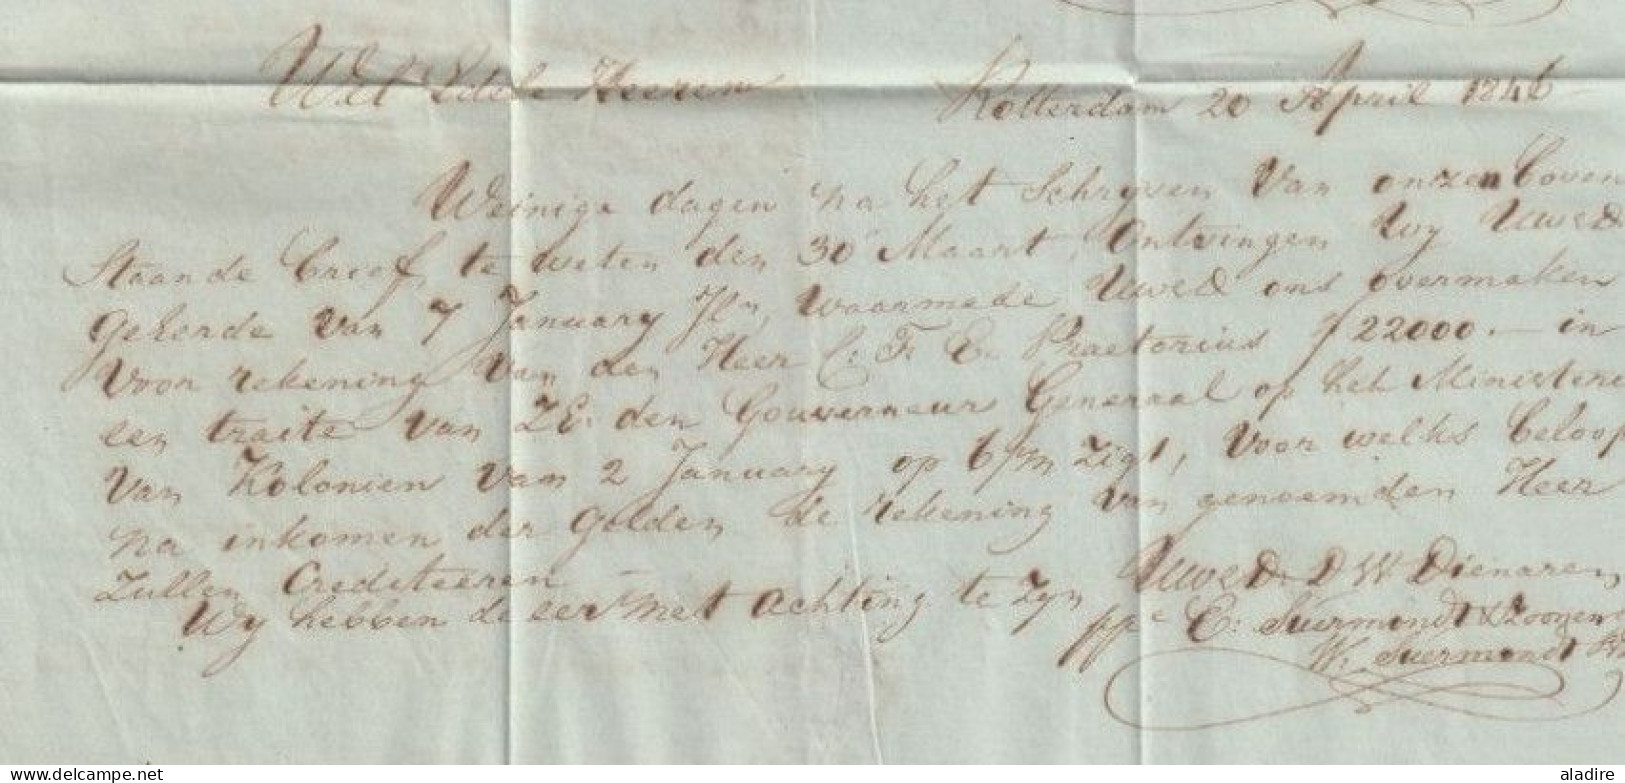 Wel Edele Heeren
Rotterdam 20 April 1846
Weinige dagen na het Schryven van onzen boven
Staande brief, te weten den 30 Maart, ontvingen wy UwEd
geherde van 7 January Jln, waarmede UwEd ons overmaken
voor rekening van den Heer C. F. E. Praetorius ƒ 22000.— in
een traite van ZE. den Gouverneur Generaal op het Ministerie
van Kolonien van 2 January op 6/m zigt, voor welks beloop
na inkomen der gelden de rekening van genoemden Heer
zullen Crediteeren —
Wy hebben de eer met achting te zyn
UwEd. D W Dienaren
ppe C: Suermondt & Zoonen &
W. Suermondt
www.delcampe.net
aladire